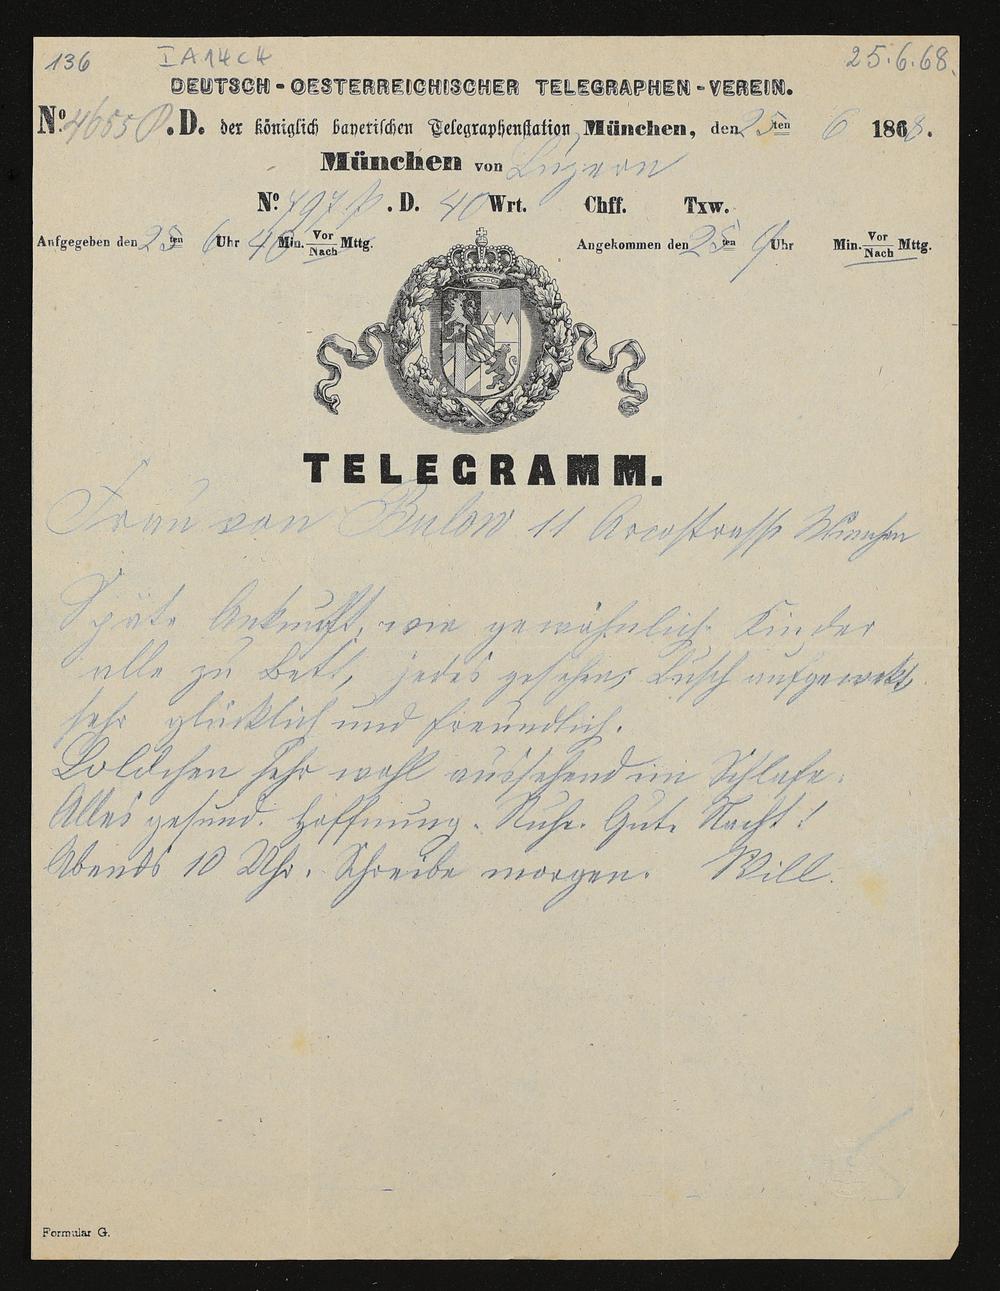 136 I A 14 c 4 25.6.68.
DEUTSCH-OESTERREICHISCHER TELEGRAPHEN-VEREIN.
No. 4655 P. D. der königlich bayerischen Telegraphenstation München, den 25ten 6 1868.
München von Luzern
No. 497 P. D. 40 Wrt. Chff. Txw.
Aufgegeben den 25ten 6 Uhr 40 Min. Vor/Nach Mttg. Angekommen den 25ten 9 Uhr Min. Vor/Nach Mttg.
TELEGRAMM.
Frau von Bulow 11 Arcostrasse München
Späte Ankunft, wie gewöhnlich. Kinder
alle zu Bett, jedes gesehen; Lusch aufgewekt,
sehr glücklich und freundlich.
Loldchen sehr wohl aussehend im Schlafe.
Alles gesund. Hoffnung. Ruhe. Gute Nacht!
Abends 10 Uhr. Schreibe morgen. Will.
Formular G.